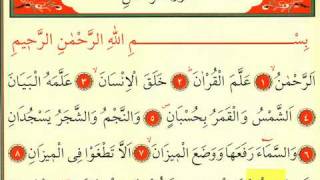 بِسْمِ اللّٰهِ الرَّحْمٰنِ الرَّحِيمِ
اَلرَّحْمٰنُ ﴿١﴾ عَلَّمَ الْقُرْاٰنَ ﴿٢﴾ خَلَقَ الْاِنْسَانَ ﴿٣﴾ عَلَّمَهُ الْبَيَانَ
﴿٤﴾ اَلشَّمْسُ وَالْقَمَرُ بِحُسْبَانٍ ﴿٥﴾ وَالنَّجْمُ وَالشَّجَرُ يَسْجُدَانِ
﴿٦﴾ وَالسَّمَٓاءَ رَفَعَهَا وَوَضَعَ الْمِيزَانَ ﴿٧﴾ اَلَّا تَطْغَوْا فِي الْمِيزَانِ ﴿٨﴾